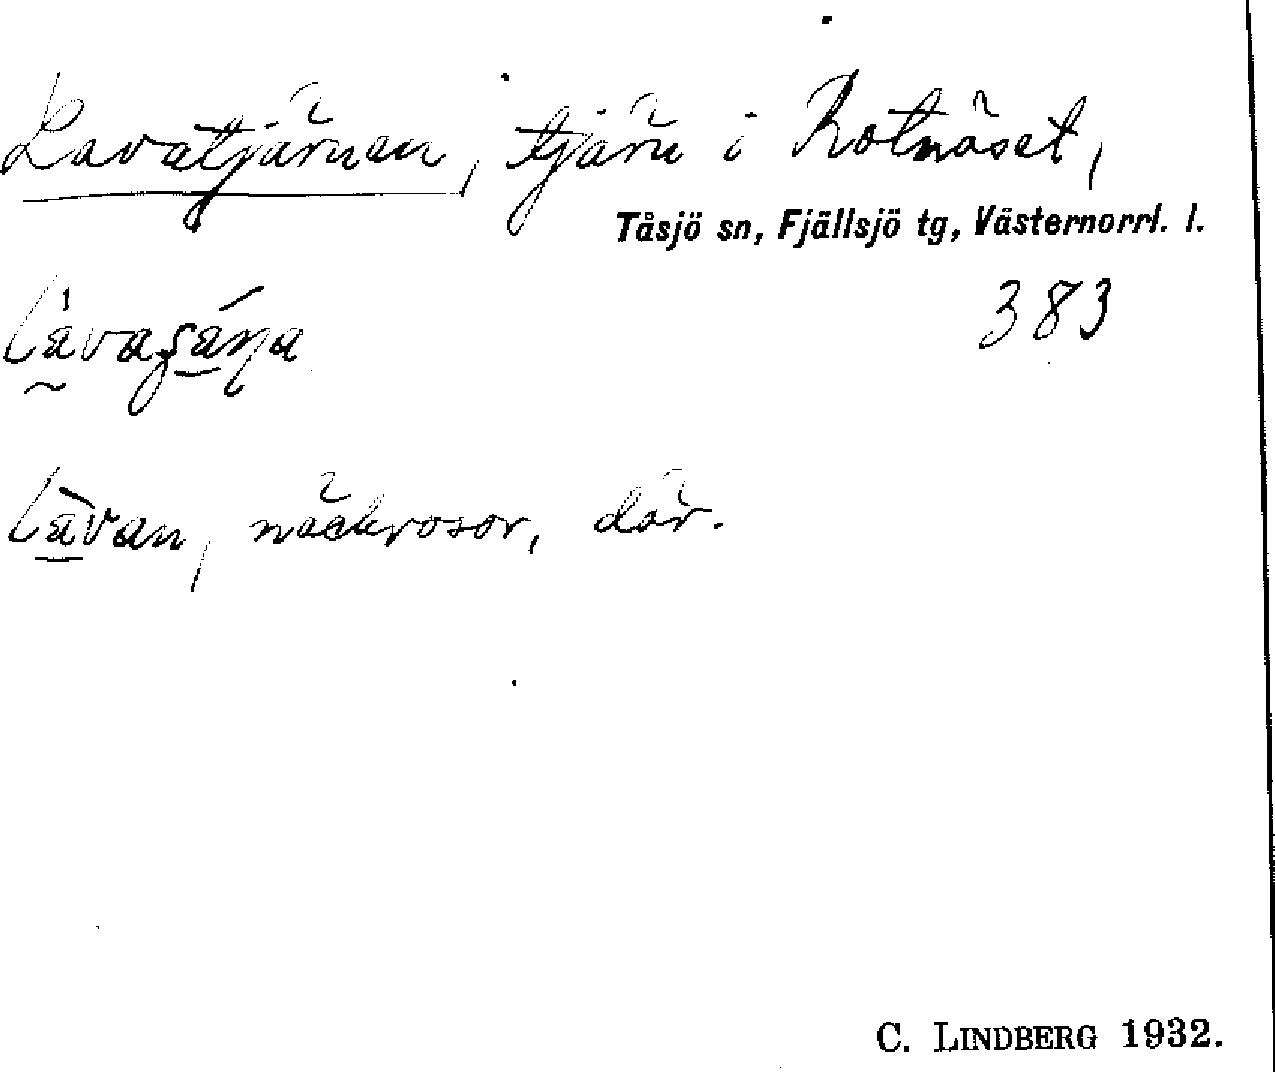 Lavatjärnen, tjärn i Rotnäset,
Tåsjö sn, Fjällsjö tg, Västernorrl. l.
383
làvan, näckrosor, där.
C. LINDBERG 1932.